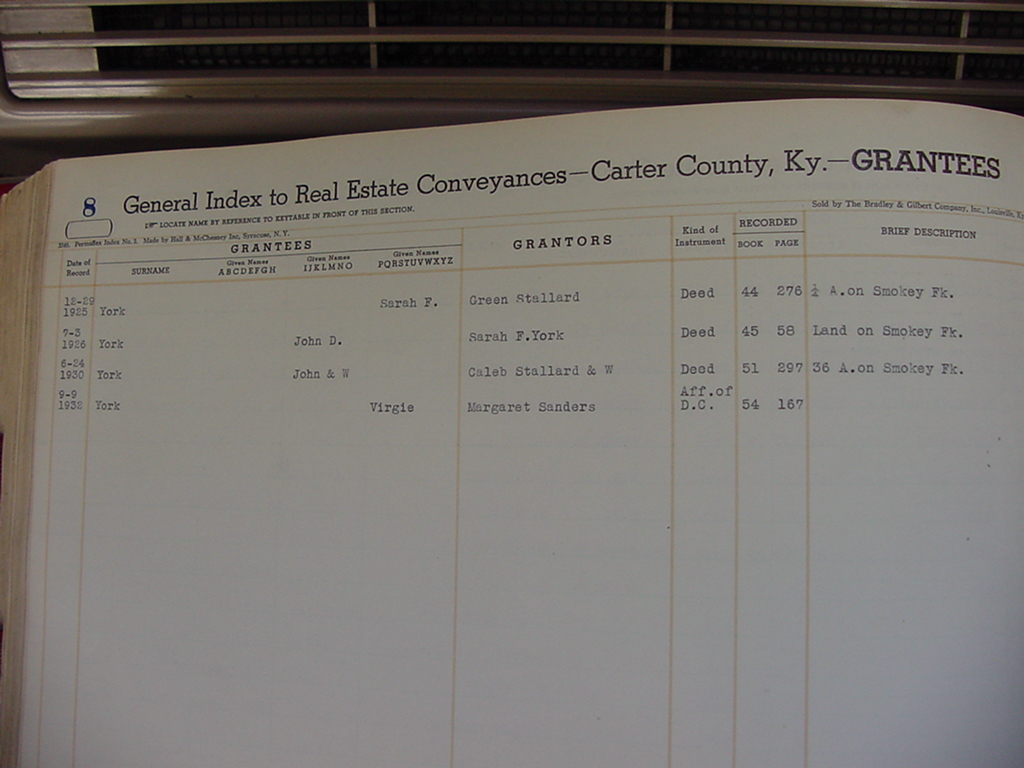 8 General Index to Real Estate Conveyances—Carter County, Ky.—GRANTEES
☞ LOCATE NAME BY REFERENCE TO KEYTABLE IN FRONT OF THIS SECTION.
Sold by The Bradley & Gilbert Company, Inc., Louisville, Ky
Permaflex Index No. 1. Made by Hall & McChesney Inc, Syracuse, N. Y.
Date of Record GRANTEES GRANTORS Kind of Instrument RECORDED BRIEF DESCRIPTION
SURNAME Given Names ABCDEFGH Given Names IJKLMNO Given Names PQRSTUVWXYZ BOOK PAGE
12-29
1925 York Sarah F. Green Stallard Deed 44 276 A.on Smokey Fk.
7-3
1926 York John D. Sarah F.York Deed 45 58 Land on Smokey Fk.
6-24
1930 York John & W Caleb Stallard & W Deed 51 297 36 A.on Smokey Fk.
9-9 Aff.of
1932 York Virgie Margaret Sanders D.C. 54 167